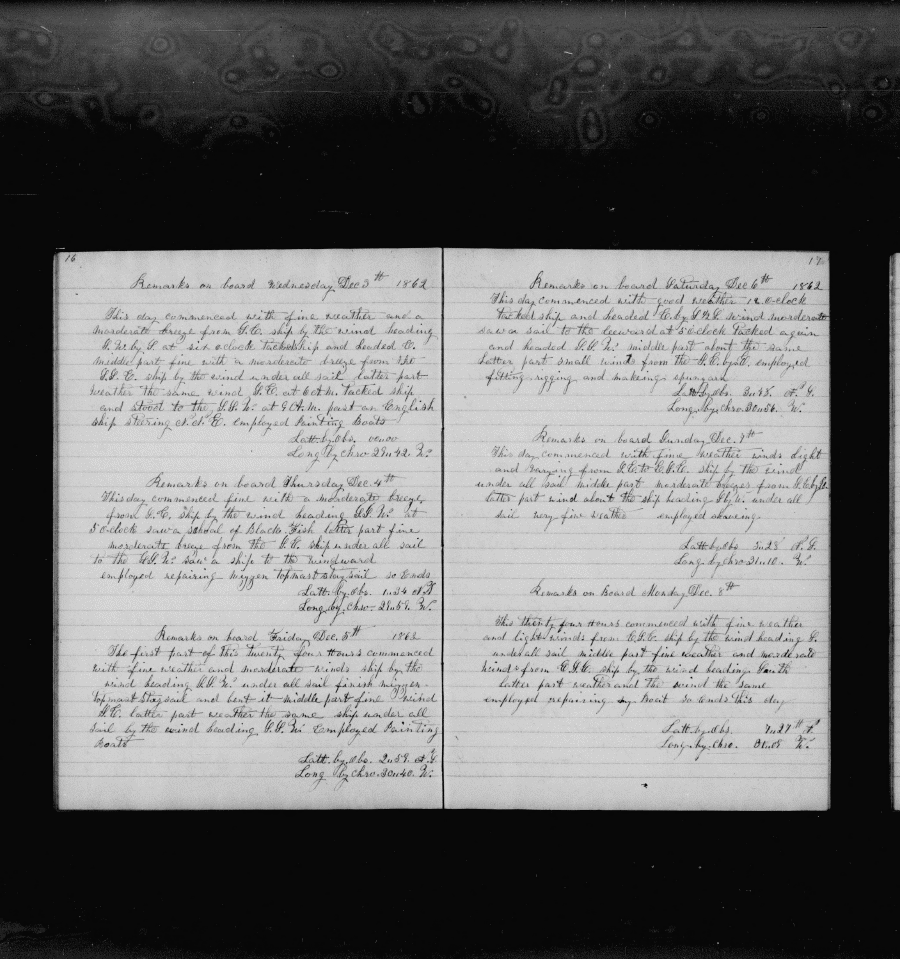 16
Remarks on board Wednesday Dec 3th 1862
This day commenced with fine weather and a
morderate breeze from S.E. ship by the wind heading
at six oclock tacked ship and headed E.
middle part fine with a morderate breeze from the
S.S.E. ship by the wind under all sail latter part
weather the same wind S.E. at 6 A.M. tacked ship
and stood to the S.S.W. at 9 A.M. past an English
ship steering N.N.E. employed Painting Boats
Latt. by Obs. 00"00
Long by Chro. 29"42 W.
Remarks on board Thursday Dec. 4th
This day commenced fine with a morderate breeze
from S.E. ship by the wind heading S.S.W. at
5 oclock saw a school of Black Fish latter part fine
morderate breeze from the S.E. ship under all sail
to the S.S.W. saw a ship to the windward
employed repairing mizzen topmast stay sail so Ends
Latt. by Obs. 1"34
Long. by Chro. 29"59. W.
Remarks on board Friday Dec. 5th 1862
The first part of this Twenty four Hours commenced
with fine weather and morderate winds ship by the
wind heading S.S.W. under all sail finish mizzen
topmast staysail and bent it middle part fine wind
S.E. latter part weather the same ship under all
sail by the wind heading S.S.W. Employed Painting
Boats
Latt. by Obs. 2"59.
Long by Chro. 30"40. W.
17
Remarks on board Saturday Dec 6th 1862
This day commenced with good weather 12 O-clock
tacked ship and headed E. by wind morderate
saw a sail to the leeward at 5 oclock Tacked again
and headed S.S.W. middle part about the same
Latter part small winds from the S.E. by E. employed
fitting rigging and makeing spunyarn
Latt by Obs. 3"48.
Long. by Chro. 30"56. W.
Remarks on board Sunday Dec. 7th
This day commenced with fine weather winds light
and varying from S.E. to E.S.E. ship by the wind
under all sail middle part morderate breezes from S.E. by E.
latter part wind about the ship heading S. by W. under all
sail very fine weather employed
Latt. by Obs 5"28
Long. by Chro. 31"10. W.
Remarks on Board Monday Dec. 8th
This twenty four Hours commenced with fine weather
and light winds from E.S.E. ship by the wind heading S.
under all sail middle part fine weather and morderate
winds from E.S.E. ship by the wind heading South
latter part weather and the wind the same
employed repairing my Boat so Ends this day
Latt. by Obs. 7"27
Long. by Chro. 31"08 W.